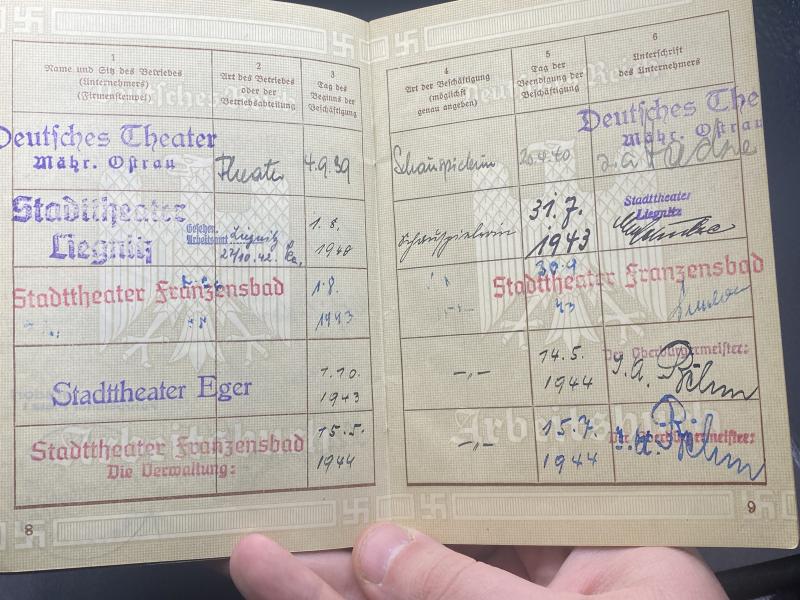 1
Name und Sitz des Betriebes
(Unternehmers)
(Firmenstempel)
2
Art des Betriebes
oder der
Betriebsabteilung
3
Tag des
Beginns der
Beschäftigung
Deutsches Theater
Mähr. Ostrau
Theater
4.9.39
Stadttheater
Liegnitz
Gesehen.
Arbeitsamt Liegnitz
27/10.42.
1.8.
1940
Stadttheater Franzensbad
1.8.
1943
Stadttheater Eger
1.10.
1943
Stadttheater Franzensbad
Die Verwaltung:
15.5.
1944
8
4
Art der Beschäftigung
(möglichst
genau angeben)
5
Tag der
Beendigung der
Beschäftigung
6
Unterschrift
des Unternehmers
Schauspielerin
20.4.40
Deutsches The
Mähr. Ostrau
Schauspielerin
31.7.
1943
Stadttheater
Liegnitz
Stadttheater Franzensbad
30.9
43
-,-
14.5.
1944
Der Oberbürgermeister:
-,-
15.7.
1944
Der Oberbürgermeister:
Arbeitsbuch
9